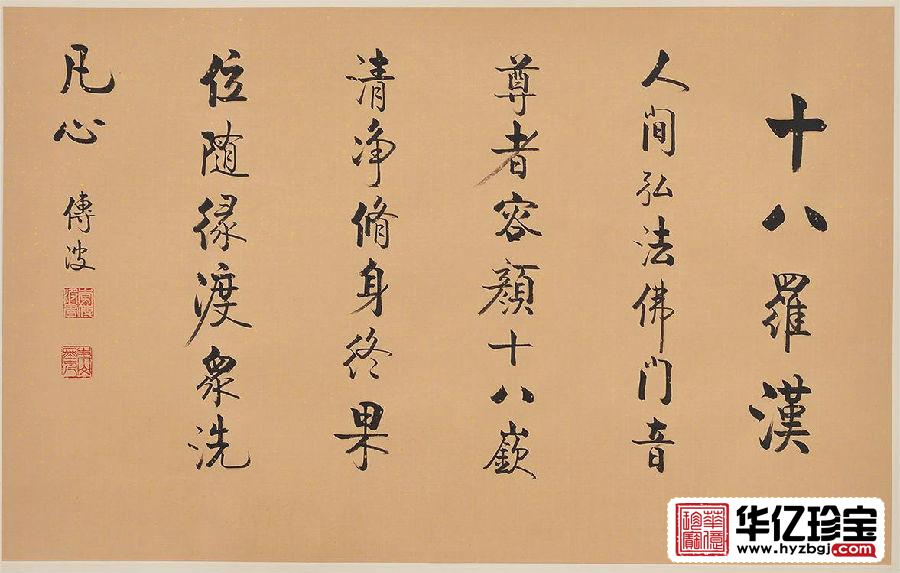 十八羅漢
人间弘法佛门音
尊者容顔十八嶔
清净脩身终果
位随缘渡眾洗
凡心
傅波
华亿珍宝
www.hyzbgj.com